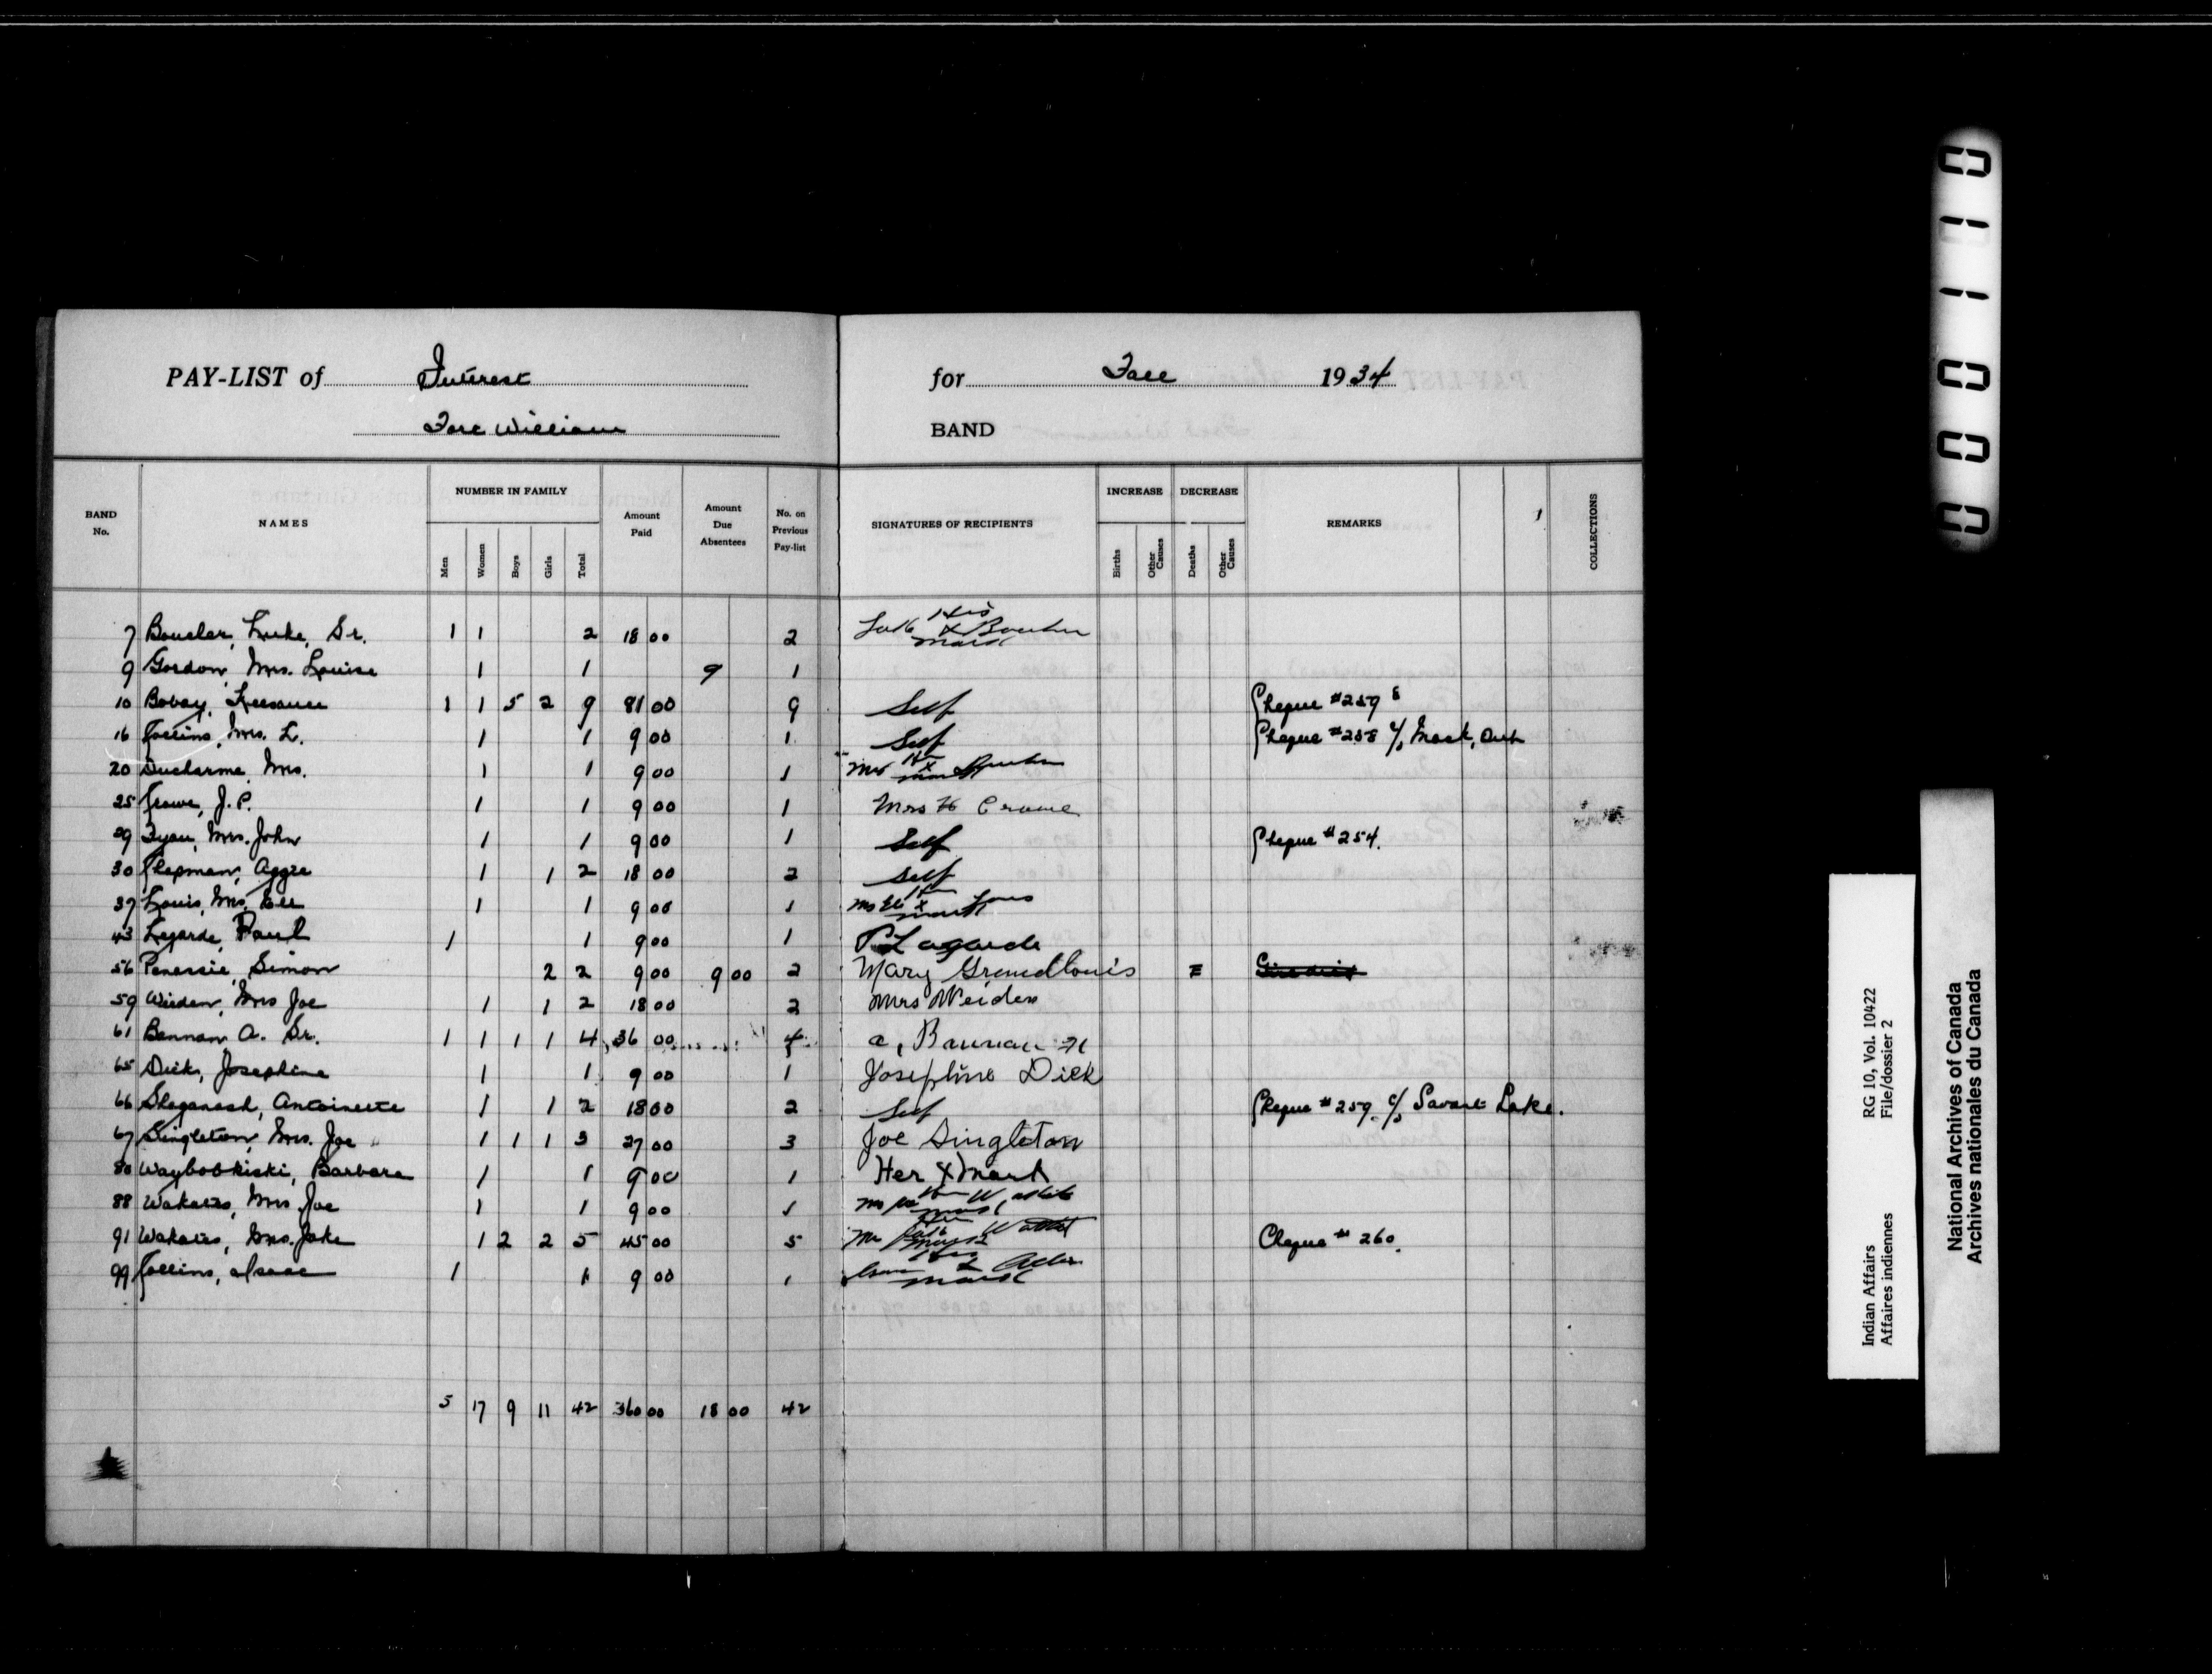 PAY-LIST of Interest for Fall 1934
Fort William BAND
BAND No. NAMES NUMBER IN FAMILY Men Women Boys Girls Total Amount Paid Amount Due Absentees No. on Previous Pay-list SIGNATURES OF RECIPIENTS INCREASE Births Other Causes DECREASE Deaths Other Causes REMARKS 1 COLLECTIONS
7 Boucher, Luke, Sr. 1 1 2 18 00 2 His X mark
9 Gordon, Mrs. Louise 1 1 9 1
10 Bobay, 1 1 5 2 9 81 00 9 Self Cheque #259
16 Collins, Mrs. L. 1 1 9 00 1 Self Cheque #258 c/o Ont
20 Ducharme, Mrs. 1 1 9 00 1 Mrs X mark
25 Crowe, J. P. 1 1 9 00 1 Mrs H Crowe
29 Mrs. John 1 1 9 00 1 Self Cheque #254.
30 Chapman, Aggie 1 1 2 18 00 2 Self
37 Louis, Mrs. Eli 1 1 9 00 1 Mrs Eli X Louis mark
43 Legarde, Paul 1 1 9 00 1 P Lagarde
56 Penassie, Simon 2 2 9 00 9 00 2 Mary Grandlouis
59 Weiden, Mrs Joe 1 1 2 18 00 2 Mrs Weiden
61 Bannon A. Sr. 1 1 1 1 4 36 00 4 a, Bannan
65 Dick, Josephine 1 1 9 00 1 Josephine Dick
66 Shaganash, Antoinette 1 1 2 18 00 2 Self Cheque #259. c/o Savant Lake.
67 Singleton, Mrs. Joe 1 1 1 3 27 00 3 Joe Singleton
80 Waybobkiski, Barbara 1 1 9 00 1 Her X Mark
88 Mrs Joe 1 1 9 00 1 mark
91 Mrs. Jake 1 2 2 5 45 00 5 mark Cheque # 260.
99 Collins, Isaac 1 1 9 00 1 mark
5 17 9 11 42 360 00 18 00 42
0 1 1 0 0 0
Indian Affairs RG 10, Vol. 10422
Affaires indiennes File/dossier 2
National Archives of Canada
Archives nationales du Canada